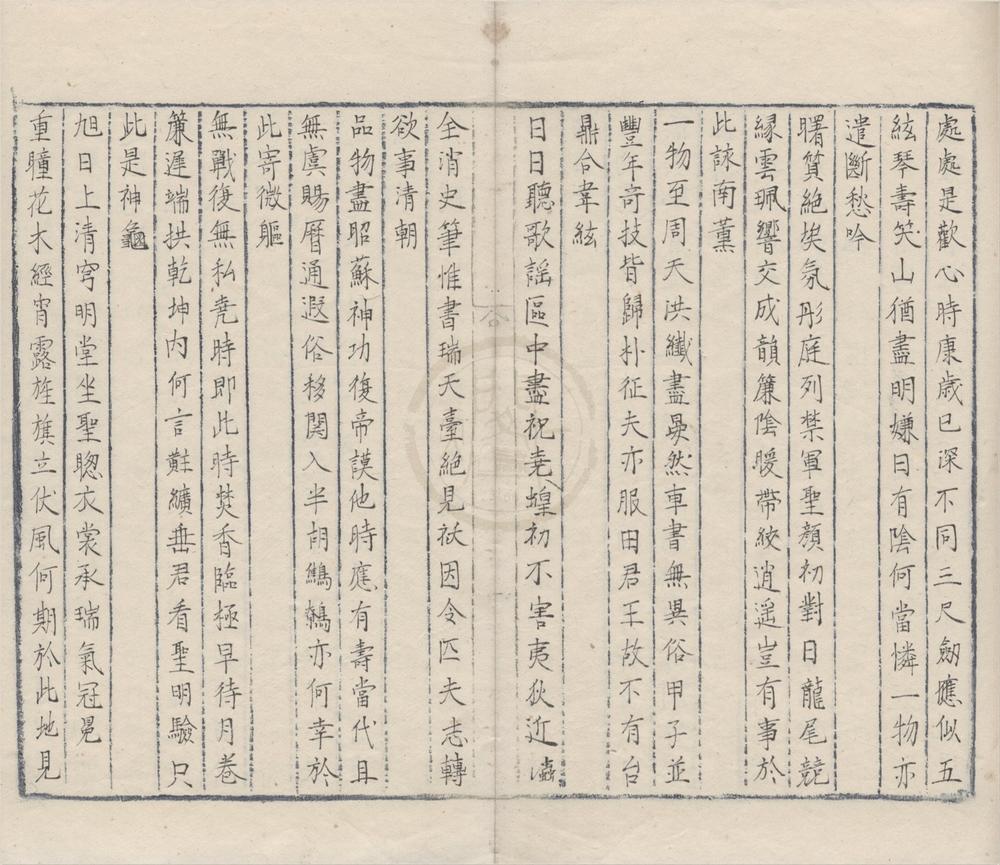 處處是歡心時康歳已深不同三尺劒應似五
絃琴壽笑山猶盡明嫌日有陰何當憐一物亦
遣斷愁吟
曙質絶埃氛彤庭列禁軍聖顔初對日龍尾競
縁雲珮響交成韻簾陰暖帶紋逍遥豈有事於
此詠南薫
一物至周天洪纖盡晏然車書無異俗甲子並
豐年竒技皆歸朴征夫亦服田君王故不有台
鼎合韋絃
日日聽歌謡區中盡祝堯蝗初不害夷狄近
全消史筆惟書瑞天臺絶見祅因令匹夫志轉
欲事清朝
品物盡昭蘇神功復帝謨他時應有壽當代且
無虞賜曆通遐俗移関入半胡鷦鷯亦何幸於
此寄微軀
無戰復無私堯時即此時焚香臨極早待月巻
簾遲端拱乾坤内何言黈纊垂君看聖明驗只
此是神龜
旭日上清穹明堂坐聖聦衣裳承瑞氣冠冕
重瞳花木經宵露旌旗立仗風何期於此地見